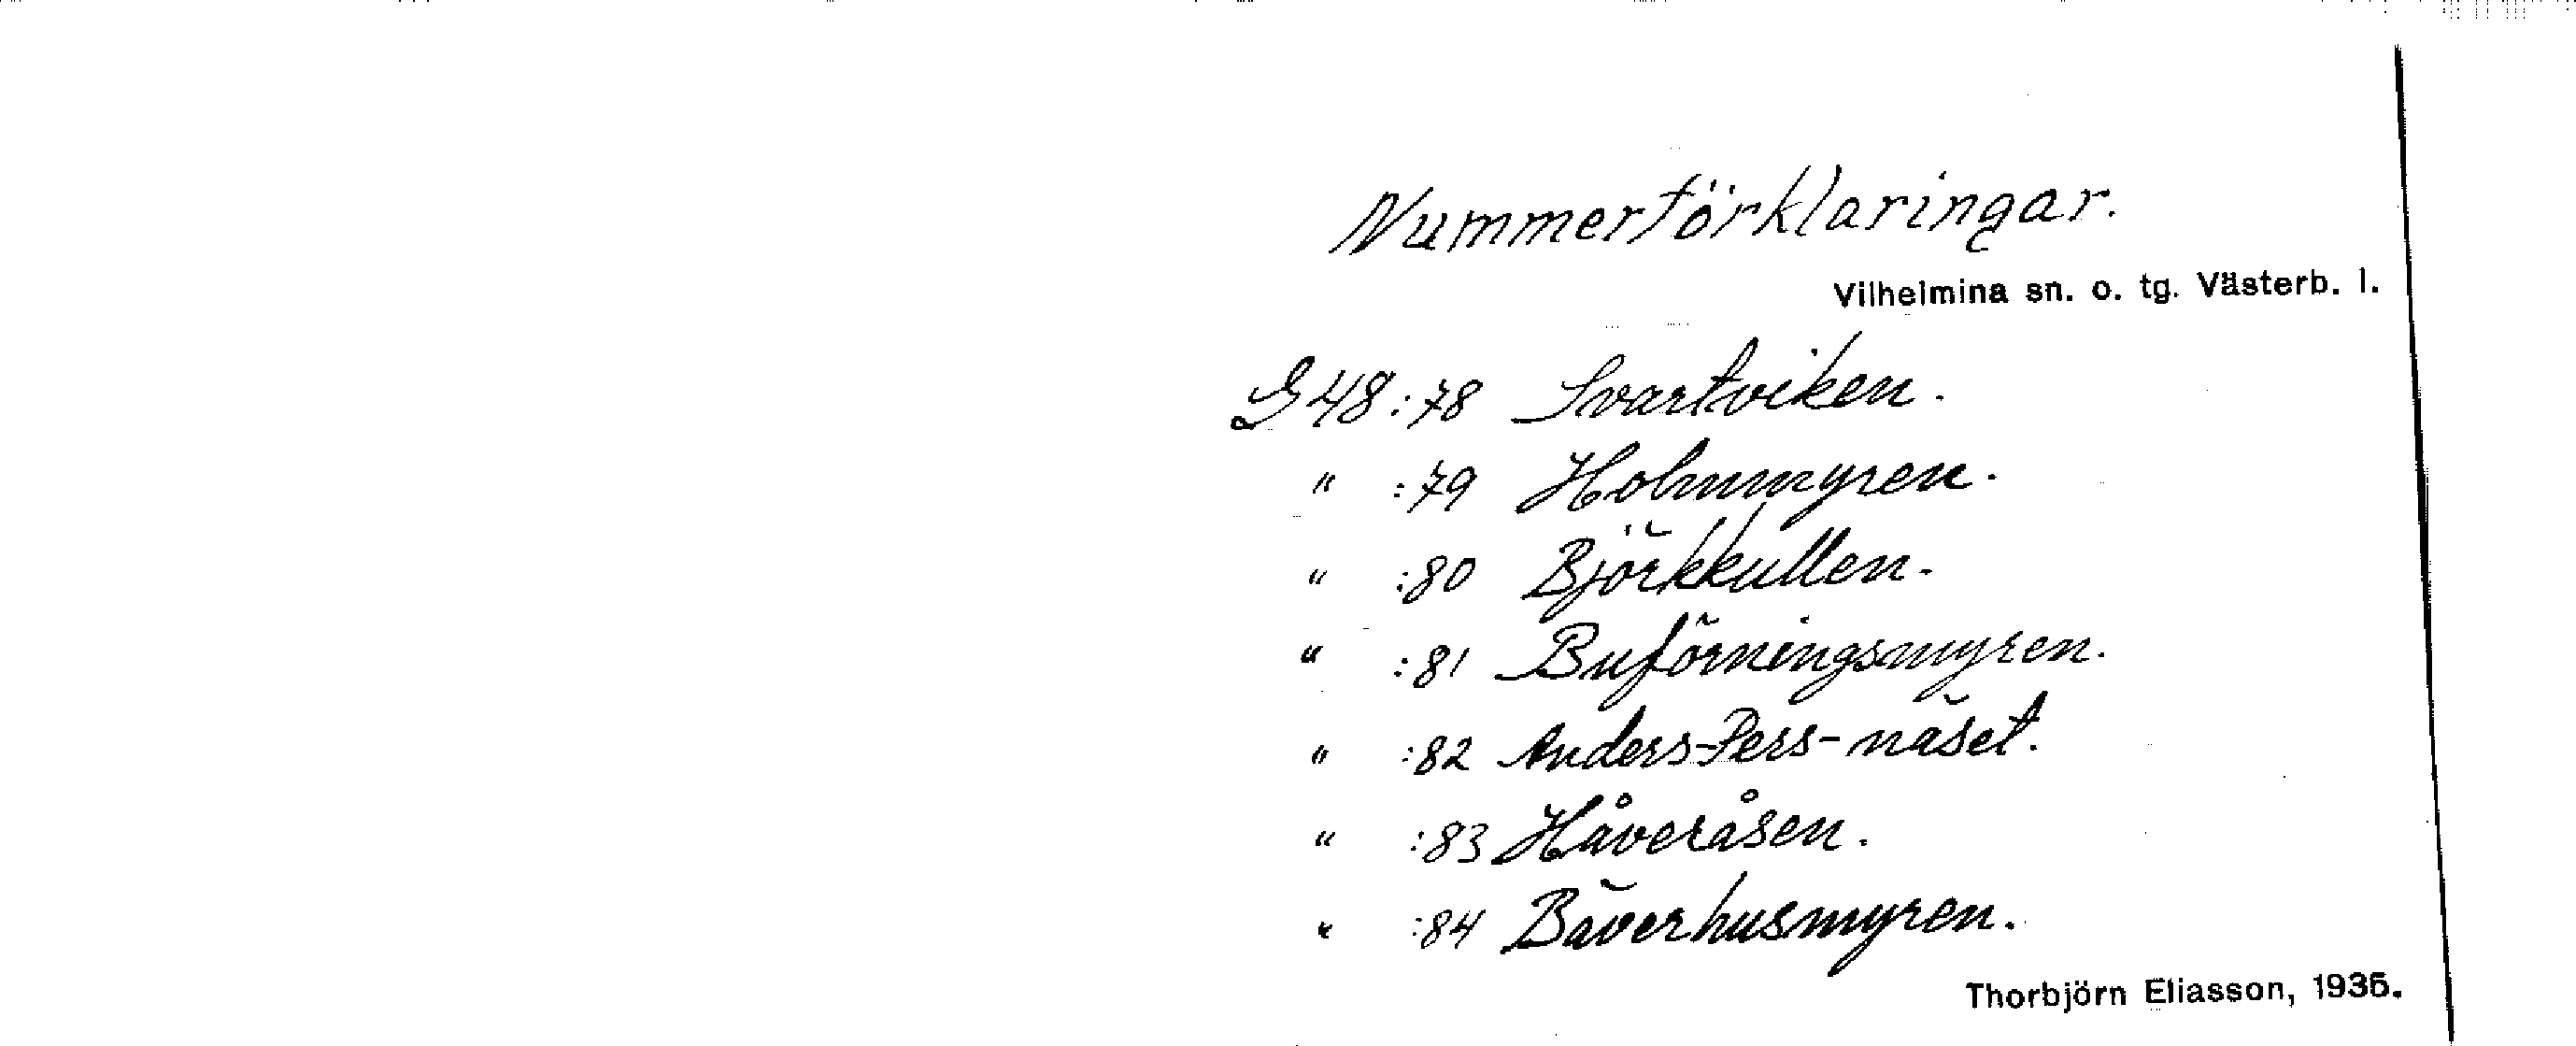 Nummerförklaringar.
Vilhelmina sn. o. tg. Västerb. l.
G 48:78 Svartviken.
" :79 Holmmyren.
" :80 Björkkullen.
" :81 Buförningsmyren.
" :82 Anders-Pers-näset.
" :83 Håveråsen.
" :84 Bäverhusmyren.
Thorbjörn Eliasson, 1935.